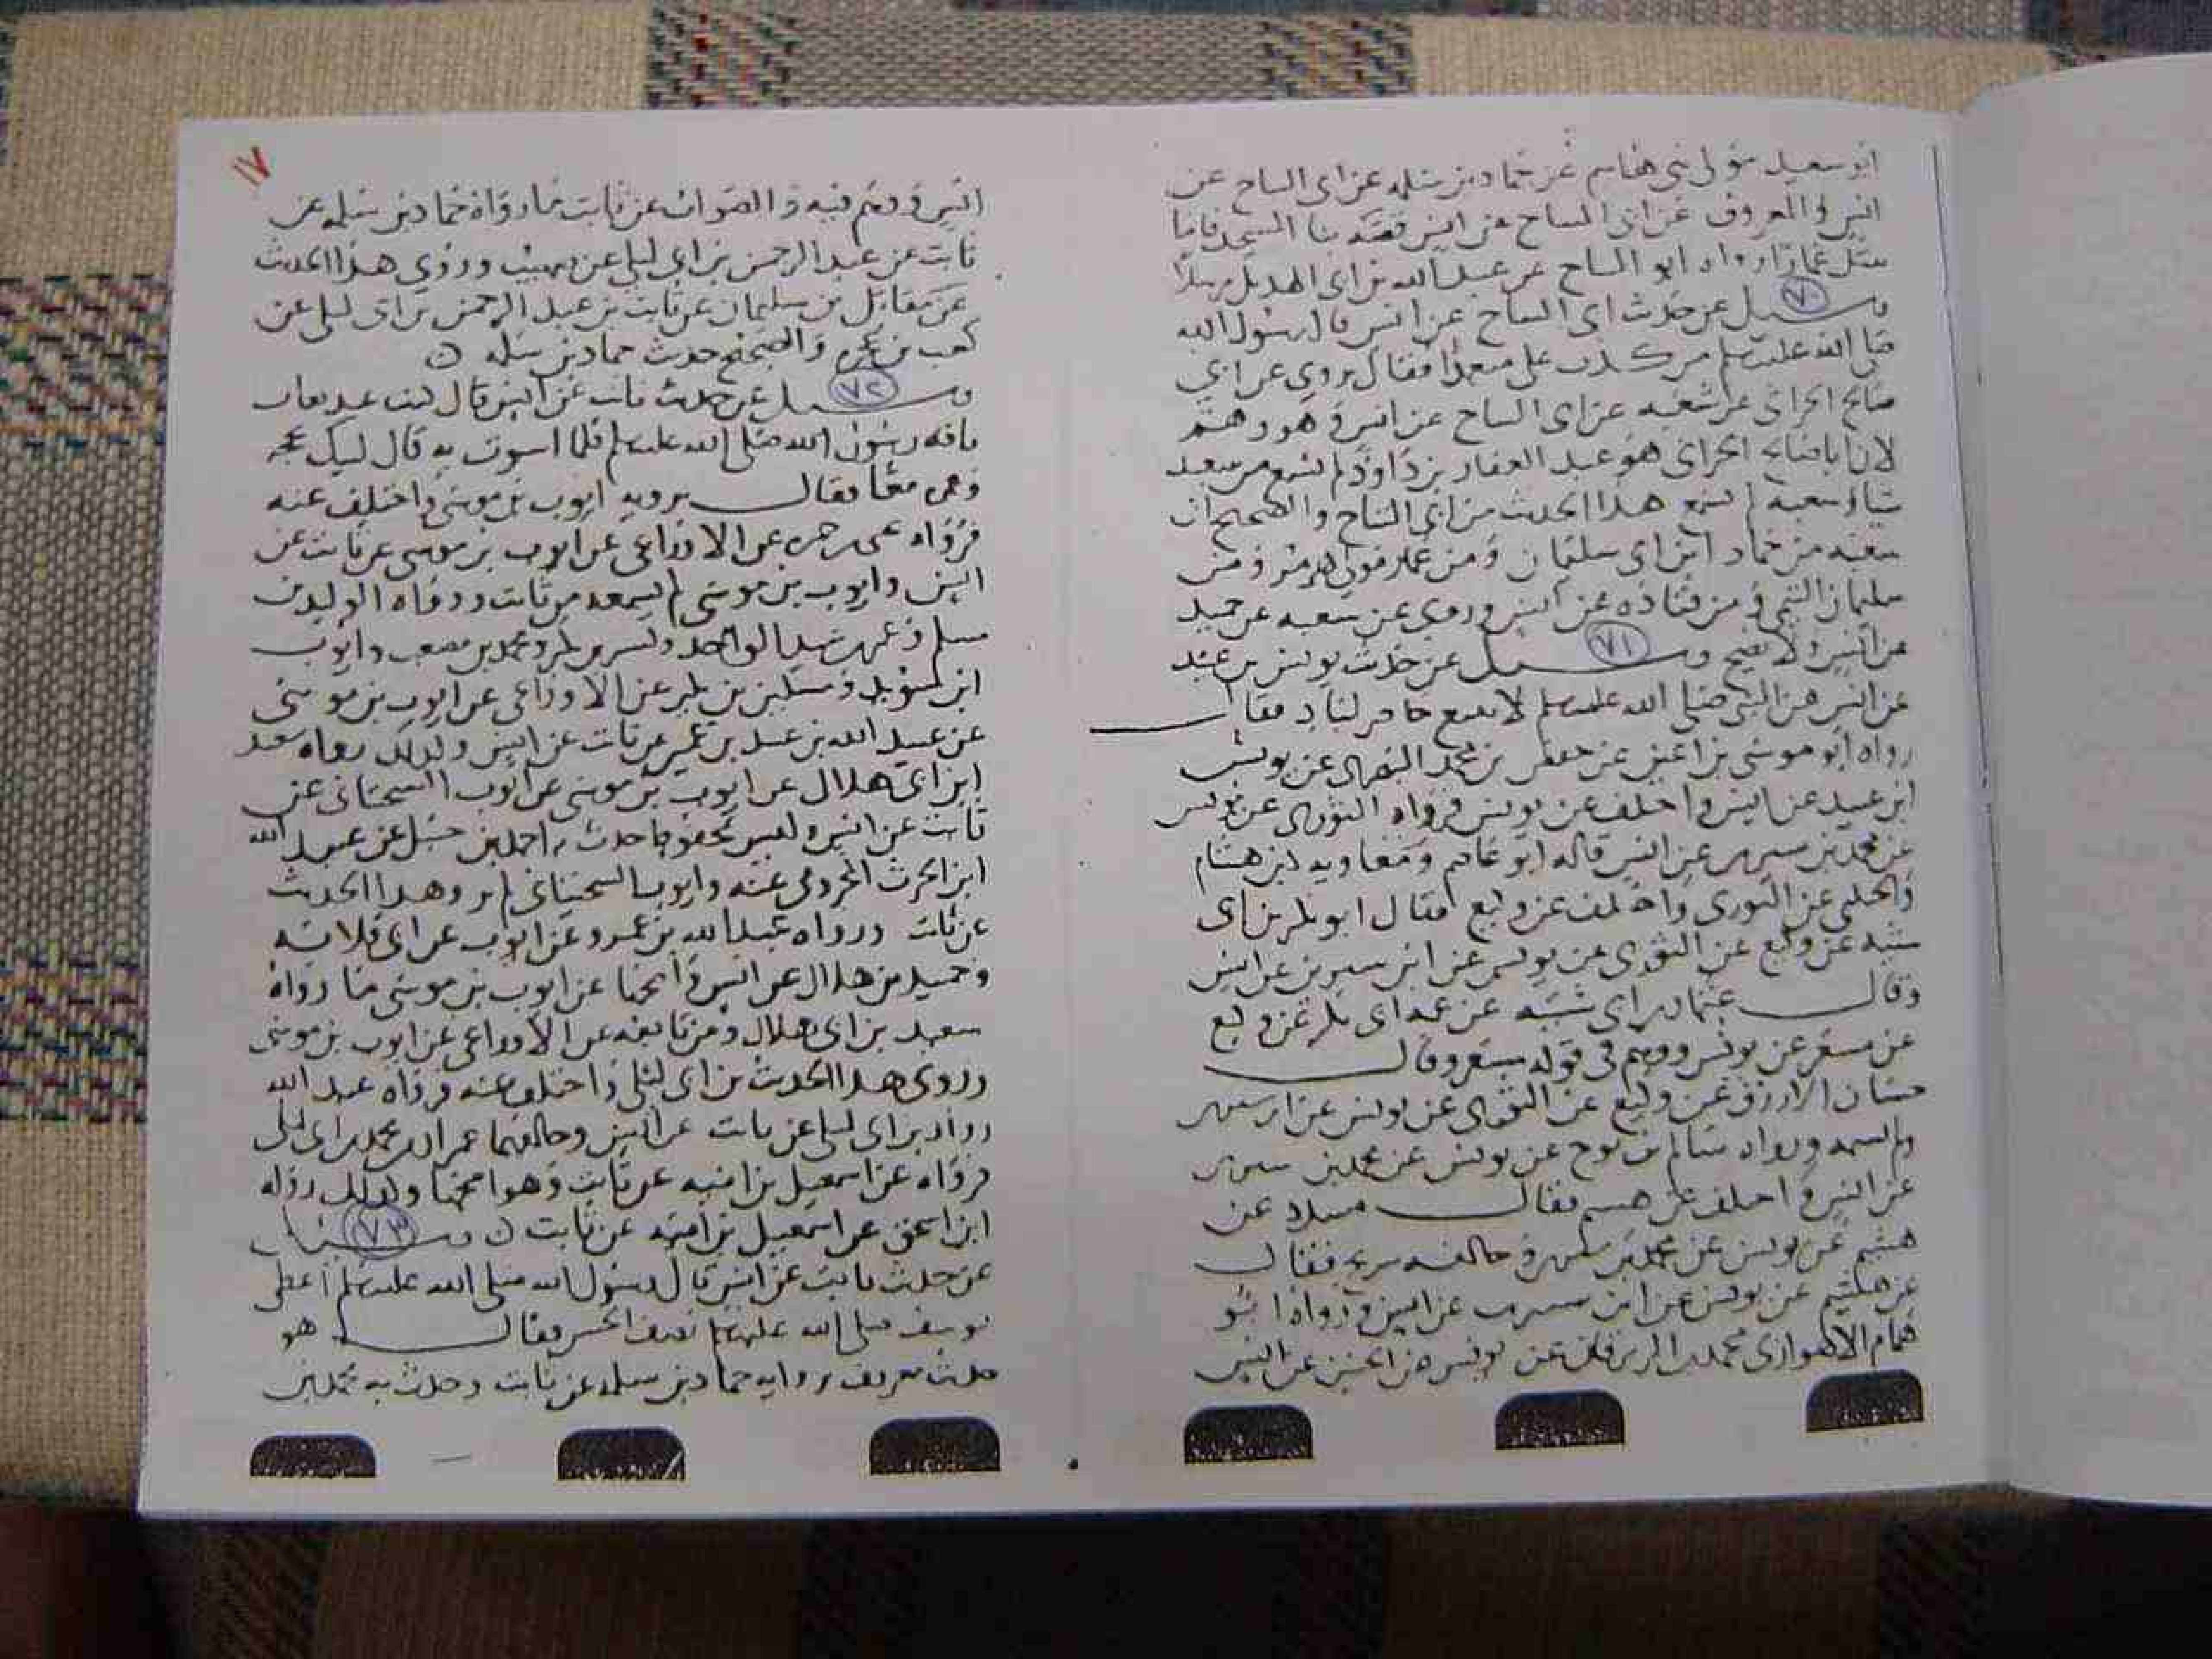 ابو سعيد مولى بني هاشم عن حماد بن سلمه عن ابى التياح عن
انس والمعروف عن ابى التياح عن انس قصه بنا المسجد فاما
عمار رواه ابو التياح عن عبد الله بن ابى الهذيل مرسلا
٧٠
وسيل عن حديث ابى التياح عن انس قال رسول الله
صلى الله عليه وسلم من كذب على متعمدا فقال يروى عن ابي
صالح الحراني عن شعبه عن ابى التياح عن انس وهو وهم
لان ابا صالح الحراني هو عبد الغفار بن داود لم يسمع من شعبه
شيا وشعبه لم يسمع هذا الحديث من ابي التياح والصحيح ان
شعبه من حماد ابن ابى سليمان ومن مولى هرمز ومن
سليمان التيمي ومن قتاده عن انس وروى عن شعبه عن حميد
عن انس ولا يصح وسيل عن حديث يونس بن عبيد
٧١
عن انس عن النبي صلى الله عليه وسلم لا يبيع حاضر لباد فقال
رواه ابو موسى بن اعين عن جعفر بن محمد عن يونس
ابن عبيد عن انس واختلف عن يونس فرواه الثورى عن يونس
عن محمد بن سيرين عن انس قاله ابو عاصم ومعاويه بن هشام
عن الثورى واختلف عن وكيع فقال ابو بكر بن ابى
شيبه عن وكيع عن الثورى عن يونس عن ابن سيرين عن انس
وقال عثمان بن ابى شيبه عن وكيع
عن مسعر عن يونس ووهم فى قوله مسعر وقال
حسان الازرق عن وكيع عن الثورى عن يونس عن ابن سيرين
ورواه سالم بن نوح عن يونس عن محمد بن سيرين
عن انس واختلف عن هشيم فقال مسدد عن
هشيم عن يونس عن محمد بن سيرين وخالفه فقال
عن هشيم عن يونس عن ابن سيرين عن انس ورواه ابو
همام الاهوازى محمد بن الزبرقان عن يونس عن الحسن عن انس
١٧
انس ووهم فيه والصواب عن ثابت ما رواه حماد بن سلمه عن
ثابت عن عبد الرحمن بن ابى ليلى عن صهيب وروي هذا الحديث
عن مقاتل بن سليمان عن ثابت عن عبد الرحمن بن ابى ليلى عن
كعب بن عجره والصحيح حديث حماد بن سلمه
٧٢
وسيل عن حديث ثابت عن انس قال كنت عند
ناقه رسول الله صلى الله عليه وسلم فلما استوت به قال لبيك بحجه
وعمره معا فقال يرويه ايوب بن موسى واختلف عنه
فرواه عن الاوزاعي عن ايوب بن موسى عن ثابت عن
انس وايوب بن موسى لم يسمعه من ثابت ورواه الوليد بن
مسلم وعمر بن عبد الواحد وبشر بن بكر ومحمد بن مصعب وايوب
ابن سويد ومسكين بن بكير عن الاوزاعى عن ايوب بن موسى
عن عبد الله بن عبيد بن عمير عن ثابت عن انس وكذلك رواه سعيد
ابن ابى هلال عن ايوب بن موسى عن ايوب السختيانى عن
ثابت عن انس وليس بمحفوظ حدث به احمد بن حنبل عن عبد الله
ابن الحرث المخزومى عنه وايوب السختيانى لم يرو هذا الحديث
عن ثابت ورواه عبيد الله بن عمرو عن ايوب عن ابى قلابه
وحميد بن هلال عن انس واصحها عن ايوب بن موسى ما رواه
سعيد بن ابى هلال ومن تابعه عن الاوزاعى عن ايوب بن موسى
وروى هذا الحديث بن ابى ليلى واختلف عنه فرواه عبد الله
بن ابى ليلى عن ثابت عن انس وخالفهما عمران بن محمد بن ابى ليلى
فرواه عن اسمعيل بن اميه عن ثابت وهو اصحها وكذلك رواه
ابن اسحق عن اسمعيل بن اميه عن ثابت وسيل
٧٣
عن حديث ثابت عن انس قال رسول الله صلى الله عليه وسلم اعطى
يوسف صلى الله عليه وسلم نصف الحسن فقال هو
حديث يعرف برواية حماد بن سلمه عن ثابت وحدث به محمد بن